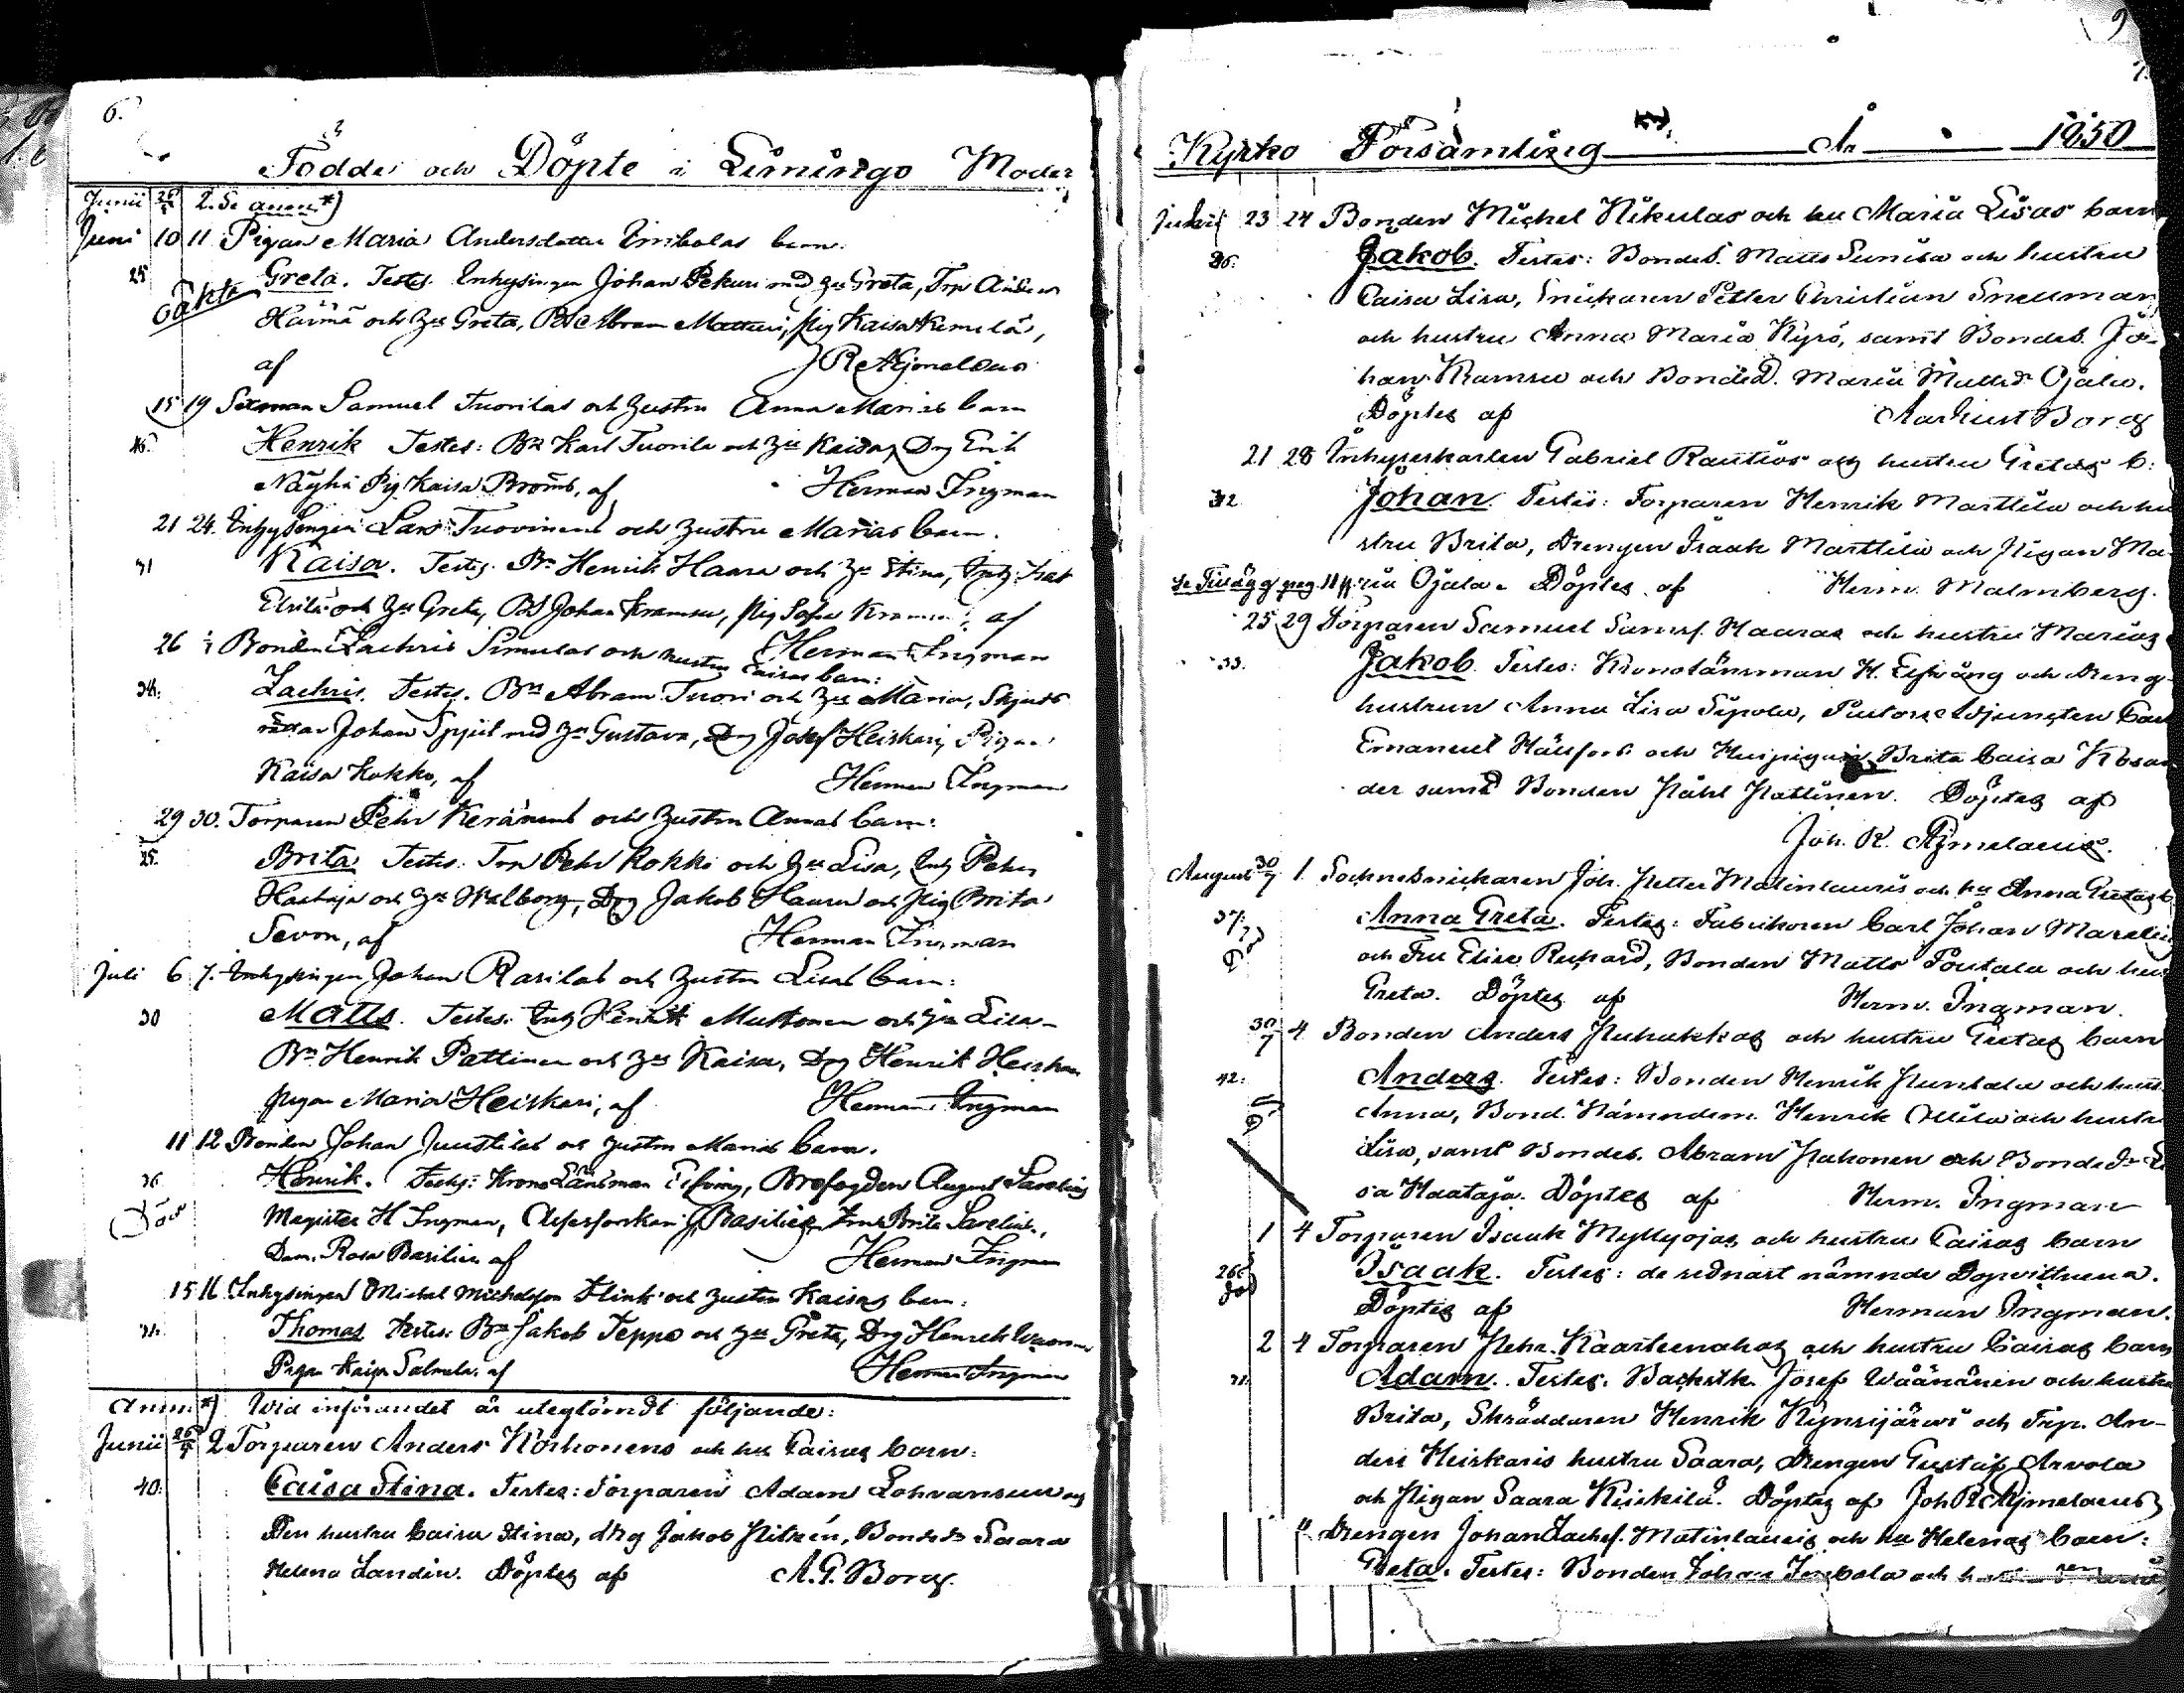 6.
Födde och Döpte i Limingo Moder
Junii 26/5 2. Se anm.*)
Juni 10 11 Pigan Maria Andersdotter Timbolas barn.
25 Greta. Testes. Inhysingen Johan Pekuri med Hu Greta, Trp Anders
oäkta
Härmä och Hu Greta, Abram Matturi, pig Kaisa Kemilä,
af J R Aejmelæus
15 19 Samuel Tuorilas och Hustru Anna Marias barn
Henrik Testes: Bn Karl Tuorila och Hu Kaisa, Drg Erik
Näyhä Pig Kaisa Broms, af Herman Ingman
21 24. Inhysingen Lars Tuovinens och Hustru Marias barn.
31 Kaisa. Testes. Bn Henrik Haara och Hu Stina, Isak
och Hu Greta, BS Johan Kramsu, pig Sofia af
26 Bonden Zachris Simulas och hustru Caisas barn: Herman Ingman
34. Zachris. Testes. Bn Abram Tuori och Hu Maria, Skjuts
rättar Johan med Hu Gustava, Drg Josef Heiskari, Pigan
Kaisa Kokko, af Herman Ingman
29 30. Torparen Pehr Keränens och Hustru Annas barn:
25. Brita Testes: Trp Pehr Kokko och Hu Lisa, Inh Peter
Haataja och Hu Walborg, Drg Jakob Haara och Pig Brita
Sevon, af Herman Ingman
Juli 6 7. Inhysingen Johan Rasilas och Hustru Lisas barn:
30 Matts. Testes: Inh Henrik Mustonen och Hu Lisa
Bn Henrik Pattinen och Hu Kaisa, Drg Henrik Heiskari
Pigan Maria Heiskari, af Herman Ingman
11 12 Bonden Johan Juustilas och Hustru Marias barn.
36. Henrik. Testes: Krono Länsman Elfving, Brofogden August Savelius
Död Magister H Ingman, J. Basilier, Fru Brita Savelius,
Dem. Rosa Basilier af Herman Ingman
15 16 Inhysingen Michel Michelsson Flink och Hustru Kaisas barn:
Thomas Testes: Bn Jakob Teppo och Hu Greta, Drg Henrik
Pigan Kaisa Salmela af Herman Ingman
Anm *) Wid införandet är uteglömdt följande:
Junii 26/5 2 Torparen Anders Korhonens och hu Caisas barn:
40. Caisa Stina. Testes: Torparen Adam Lohvansuu och
Dess hustru Caisa Stina, drg Jakob Pitkän, Bonded. Saara
Helena Landin. Döptes af A. G. Borg.
9
7.
Kyrko Församling År 1850
Julii 23 24 Bonden Michel Nikulas och hu Maria Lisas barn
26. Jakob. Testes: Bondes. Matts Sunisa och hustru
Caisa Lisa, Snickaren Petter Christian Snellman
och hustru Anna Maria Kyrö, samt Bondes. Jo-
han Kramsu och Bonded. Maria Mattsd. Ojala.
Döptes af Aarhust Borg
21 28 Inhyseskarlen Gabriel Rautios och hustru Gretas b:
32 Johan. Testes: Torparen Henrik Marttila och hu
stru Brita, Drengen Isaak Marttila och Pigan Ma-
se Tillägg pag. 11 ria Ojala. Döptes af Herm. Malmberg.
25 29 Torparen Samuel Samsf. Haaras och hustru Marias
33. Jakob. Testes: Kronolänsman H. Elfving och Dreng-
hustrun Anna Lisa Sipola, Pastors Adjuncten Carl
Emanuel Hällfors och Huspigan Brita Caisa
der samt Bonden Påhl Pattinen. Döptes af
Joh. R. Aejmelaeus.
August 30/7 1. Sockne Snickaren Joh. Petter Matinlauris och hu Anna Gretas b
37. Anna Greta. Testes: Fabrikoren Carl Johan
Död och Fru Elise Ruhard, Bonden Matts Poutala och hus
Greta. Döptes af Herm. Ingman.
30/7 4 Bonden Anders Puhakkas och hustru Gretas barn
42. Anders. Testes: Bonden Henrik Puntala och hust
Död Anna, Bond. Nämndem. Henrik Ollila och hustr
Lisa, samt Bondes. Abram Pakonen och Bonded. Li
sa Haataja. Döptes af Herm. Ingman
1 4 Torparen Isaak Myllyojas och hustru Caisas barn
26 Isaak. Testes: de sednast nämnde Dopvittnena.
Död Döptes af Herman Ingman.
2 4 Torparen Pehr Kaarteenahos och hustru Caisas barn
31. Adam. Testes. Backstk. Josef Wäänänen och hustru
Brita, Skräddaren Henrik Kynsijärvi och Trp. An-
ders Heiskaris hustru Saara, Drengen Gustaf Arvola
och Pigan Saara Kuikila. Döptes af Joh R Aejmelaeus
" Drengen Johan Zachsf. Matinlauris och hu Helenas barn:
Greta. Testes: Bonden Johan Timbola och